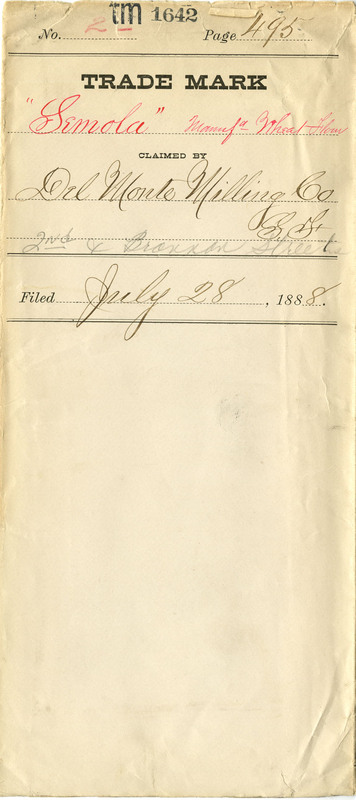 tm 1642
No. 2 Page 495
TRADE MARK
"Semola" Manufd Wheat Flour
CLAIMED BY
Del Monte Milling Co
S. F.
2nd & Brannan Street
Filed July 28, 1888.